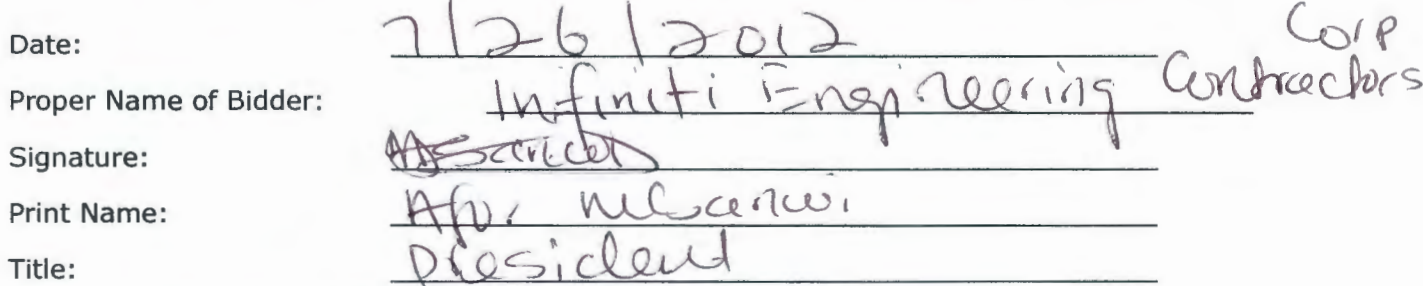 Date: 7/26/2012
Proper Name of Bidder: Infiniti Engineering Contractors Corp
Signature:
Print Name:
Title: President